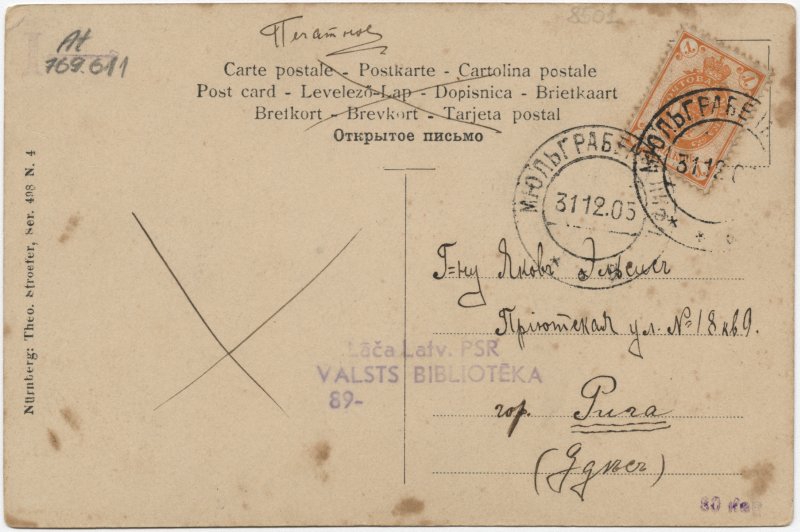 At
769.611
8501
Печатное
Carte postale - Postkarte - Cartolina postale
Post card - Levelező-Lap - Dopisnica - Briefkaart
Brefkort - Brevkort - Tarjeta postal
Открытое письмо
МЮЛЬГРАБЕНЪ
31 12.05
МЮЛЬГРАБЕНЪ
31 12.0
Г=ну Яковъ
Прiютская ул. № 18 кв 9.
гор. Рига
(Здѣсь)
Lāča Latv. PSR
VALSTS BIBLIOTĒKA
89-
80 кап
Nürnberg: Theo. Stroefer, Ser. 498 N. 4